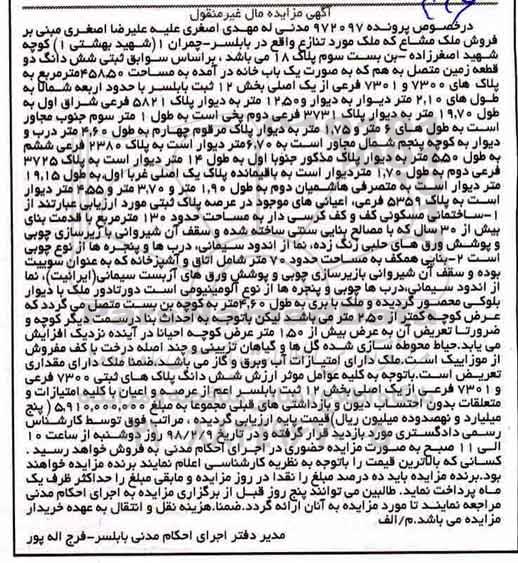 آگهی مزایده مال غیرمنقول
درخصوص پرونده ۹۷۲۰۹۷ مدنی له مهدی اصغری علیه علیرضا اصغری مبنی بر
فروش ملک مشاع که ملک مورد تنازع واقع در بابلسر-چمران ۱(شهید بهشتی ۱) کوچه
شهید اصغرزاده -بن بست سوم پلاک ۱۸ می باشد ، براساس سوابق ثبتی شش دانگ دو
قطعه زمین متصل به هم که به صورت یک باب خانه در آمده به مساحت ۴۵۸۵۰مترمربع به
پلاک های ۷۳۰۰ و ۷۳۰۱ فرعی از یک اصلی بخش ۱۲ ثبت بابلسر با حدود اربعه شمالا به
طول های ۲،۱۰ متر دیوار به دیوار و۱۲۵۰ متر به دیوار پلاک ۵۸۲۱ فرعی شراق اول به
طول ۱۹،۷۰ متر به دیوار پلاک ۳۷۳۱ فرعی دوم پخی است به طول ۱ متر سوم جنوب مجاور
است به طول های ۶ متر و ۱،۷۵ متر به دیوار پلاک مرقوم چهارم به طول ۴،۶۰ متر درب و
دیوار به کوچه پنجم شمال مجاور است به ۶،۷۰متر دیوار است به پلاک ۲۳۸۰ فرعی ششم
به طول ۵،۵۰ متر به دیوار پلاک مذکور جنوبا اول به طول ۱۴ متر دیوار است به پلاک ۳۷۲۵
فرعی دوم به طول ۱،۷۰ متردیوار است به باقیمانده پلاک یک اصلی غربا اول به طول ۱۹،۱۵
متر دیوار است به متصرفی هاشمیان دوم به طول ۱،۹۰ متر و ۳،۷۰ متر و ۴۵۵ متر دیوار
است به پلاک ۵۳۵۹ فرعی، اعیانی های موجود در عرصه پلاک ثبتی مورد ارزیابی عبارتند از
۱-ساختمانی مسکونی کف و کف کرسی دار به مساحت حدود ۱۳۰ مترمربع با قدمت بنای
بیش از ۳۰ سال که با مصالح بنایی سنتی ساخته شده و سقف آن شیروانی با زیرسازی چوبی
و پوشش ورق های حلبی زنگ زده، نما از اندود سیمانی، درب ها و پنجره ها از نوع چوبی
است ۲-بنایی همکف به مساحت حدود ۷۰ متر شامل اتاق و آشپزخانه که به عنوان سوییت
بوده و سقف آن شیروانی بازیرسازی چوبی و پوشش ورق های آزبست سیمانی(ایرانیت)، نما
از اندود سیمانی،درب ها چوبی و پنجره ها از نوع آلومینیومی است دورتادور ملک با دیوار
بلوکی محصور گردیده و ملک با بری به طول ۴،۶۰متر به کوچه بن بست متصل می گردد که
عرض کوچه کمتر از ۲،۵۰ متر می باشد لیکن باتوجه به احداث بنا درسمت دیگر کوچه و
ضرورتا تعریض آن به عرض بیش از ۱،۵۰ متر عرض کوچه احیانا در آینده نزدیک افزایش
می یابد.حیاط محوطه سازی شده گل ها و گیاهان تزیینی و چند اصله درخت با کف مفروش
از موزاییک است.ملک دارای امتیازات آب وبرق و گاز می باشد.ضمنا ملک دارای مقداری
تعریض است.باتوجه به کلیه عوامل موثر ارزش شش دانگ پلاک های ثبتی ۷۳۰۰ فرعی
و ۷۳۰۱ فرعی از یک اصلی بخش ۱۲ ثبت بابلسر اعم از عرصه و اعیان با کلیه امتیازات و
متعلقات بدون احتساب دیون و بازداشتی های قبلی مجموعا به مبلغ ۵،۹۱۰،۰۰۰،۰۰۰ ( پنج
میلیارد و نهصدوده میلیون ریال)قیمت پایه ارزیابی گردیده ، مراتب فوق توسط کارشناس
رسمی دادگستری مورد بازدید قرار گرفته و در تاریخ ۹۸/۱۰/ روز دوشنبه از ساعت ۱۰
الی ۱۱ صبح به صورت مزایده حضوری در اجرای احکام مدنی به فروش خواهد رسید .
کسانی که بالاترین قیمت را باتوجه به نظریه کارشناسی اعلام نمایند برنده مزایده خواهند
بود.برنده مزایده باید ده درصد مبلغ را نقدا در روز مزایده و مابقی مبلغ را حداکثر ظرف یک
ماه پرداخت نماید. طالبین می توانند پنج روز قبل از برگزاری مزایده به اجرای احکام مدنی
مراجعه نمایند تا مورد مزایده به آنان ارائه گردد.ضمنا.هزینه نقل و انتقال به عهده خریدار
مزایده می باشد.م/الف
مدیر دفتر اجرای احکام مدنی بابلسر-فرج اله پور